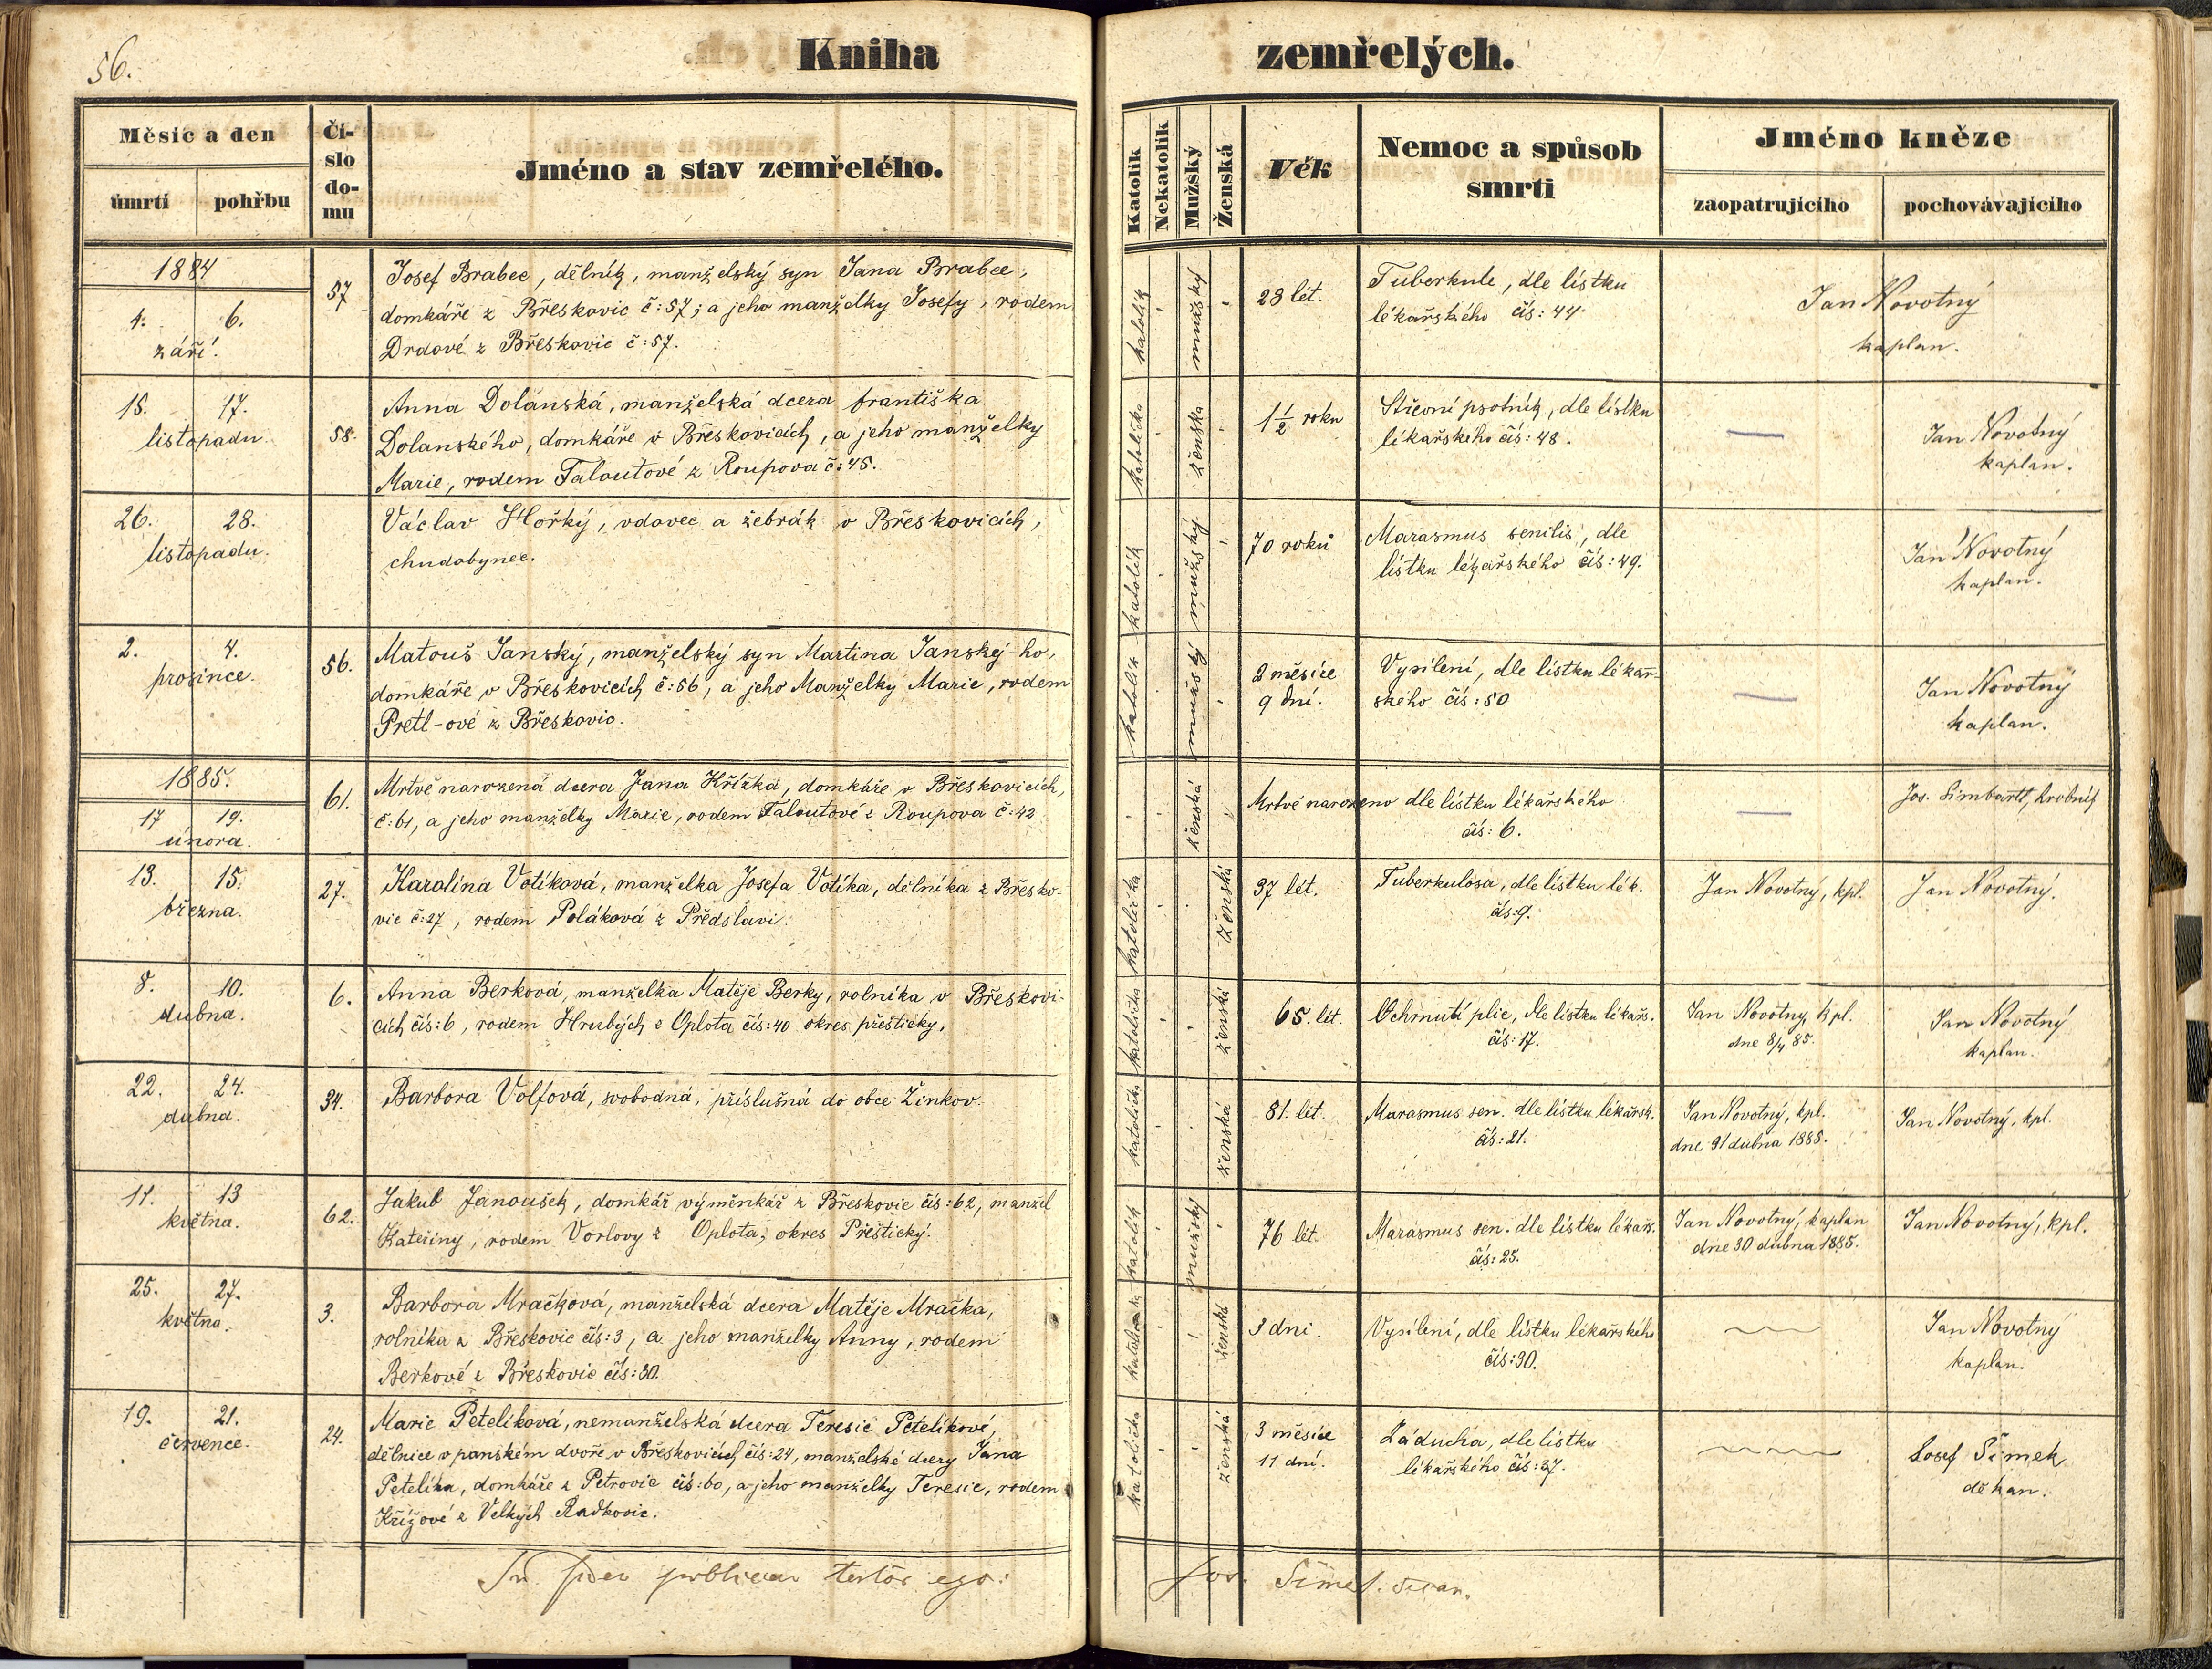 56.
Kniha zemřelých.
Měsíc a den
úmrtí
pohřbu
Čí-
slo
do-
mu
Jméno a stav zemřelého.
Katolík
Nekatolík
Mužský
Ženská
Věk
Nemoc a spůsob
smrti
Jméno kněze
zaopatrujícího
pochovávajícího
1884
4. 6.
září.
57
Josef Brabec, dělník, manželský syn Jana Brabce,
domkáře z Břeskovic č:57; a jeho manželky Josefy, rodem
Drdové z Břeskovic č:57.
katolík
mužský
23 let.
Tuberkule, dle lístku
lékařského čís: 44.
Jan Novotný
kaplan.
15. 17.
listopadu.
58.
Anna Dolanská, manželská dcera františka
Dolanského, domkáře v Břeskovicích, a jeho manželky
Marie, rodem Taloutové z Roupova č:45.
katolička
ženská
1½ roku
Střevní psotník, dle lístku
lékařského čís: 48.
—
Jan Novotný
kaplan.
26. 28.
listopadu.
Václav Hořký, vdovec a žebrák v Břeskovicích,
chudobynec.
katolík
mužský
70 roků
Marasmus senilis, dle
lístku lékařského čís: 49.
Jan Novotný
kaplan.
2. 4.
prosince.
56.
Matouš Janský, manželský syn Martina Janskéj-ho,
domkáře v Břeskovicích č:56, a jeho Manželky Marie, rodem
Pretl-ové z Břeskovic.
katolík
mužský
2 měsíce
9 dní.
Vysílení, dle lístku lékař-
ského čís: 50
—
Jan Novotný
kaplan.
1885.
17 19.
února.
61.
Mrtvě narozená dcera Jana Křížka, domkáře v Břeskovicích,
č:61, a jeho manželky Marie, rodem Taloutové z Roupova č:42
ženská
Mrtvě narozeno dle lístku lékařského
čís: 6.
—
Jos. hrobník
13. 15.
března.
27.
Karolína Votíková, manželka Josefa Votíka, dělníka z Břesko-
vic č:27, rodem Poláková z Předslavi.
katolička
ženská
37 let.
Tuberkulosa, dle lístku lék.
čís:9.
Jan Novotný, kpl.
Jan Novotný.
8. 10.
dubna.
6.
Anna Berková, manželka Matěje Berky, rolníka v Břeskovi-
cích čís:6, rodem Hrubých z Oplota čís:40 okres přeštický,
katolička
ženská
65. let.
Ochrnutí plic, dle lístku lékařs.
čís:17.
Jan Novotný, kpl.
dne 8/4 85.
Jan Novotný
kaplan.
22. 24.
dubna.
34.
Barbora Volfová, svobodná, příslušná do obce Žinkov.
katolička
ženská
81. let.
Marasmus sen. dle lístku lékařsk.
čís: 21.
Jan Novotný, kpl.
dne 21 dubna 1885.
Jan Novotný, kpl.
11. 13
května.
62.
Jakub Janoušek, domkář výměnkář z Břeskovic čís:62, manžel
Kateřiny, rodem Vorlovy z Oplota, okres Přeštický.
katolík
mužský
76 let.
Marasmus sen. dle lístku lékařs.
čís: 25.
Jan Novotný, kaplan
dne 30 dubna 1885.
Jan Novotný, kpl.
25. 27.
května.
3.
Barbora Mračková, manželská dcera Matěje Mračka,
rolníka z Břeskovic čís:3, a jeho manželky Anny, rodem
Berkové z Břeskovic čís:30.
katolička
ženská
3 dni.
Vysílení, dle lístku lékařského
čís:30.
Jan Novotný
kaplan.
19. 21.
července.
24.
Marie Petelíková, nemanželská dcera Teresie Petelíkové,
dělnice v panském dvoře v Břeskovicích čís:24, manželské dcery Jana
Petelíka, domkáře z Petrovic čís:60, a jeho manželky Teresie, rodem
Křížové z Velkých Radkovic.
katolička
ženská
3 měsíce
11 dní.
Záducha, dle lístku
lékařského čís:37.
Josef Šimek
děkan.
In fidem publicam testor ego:
Jos. Šimek děkan.